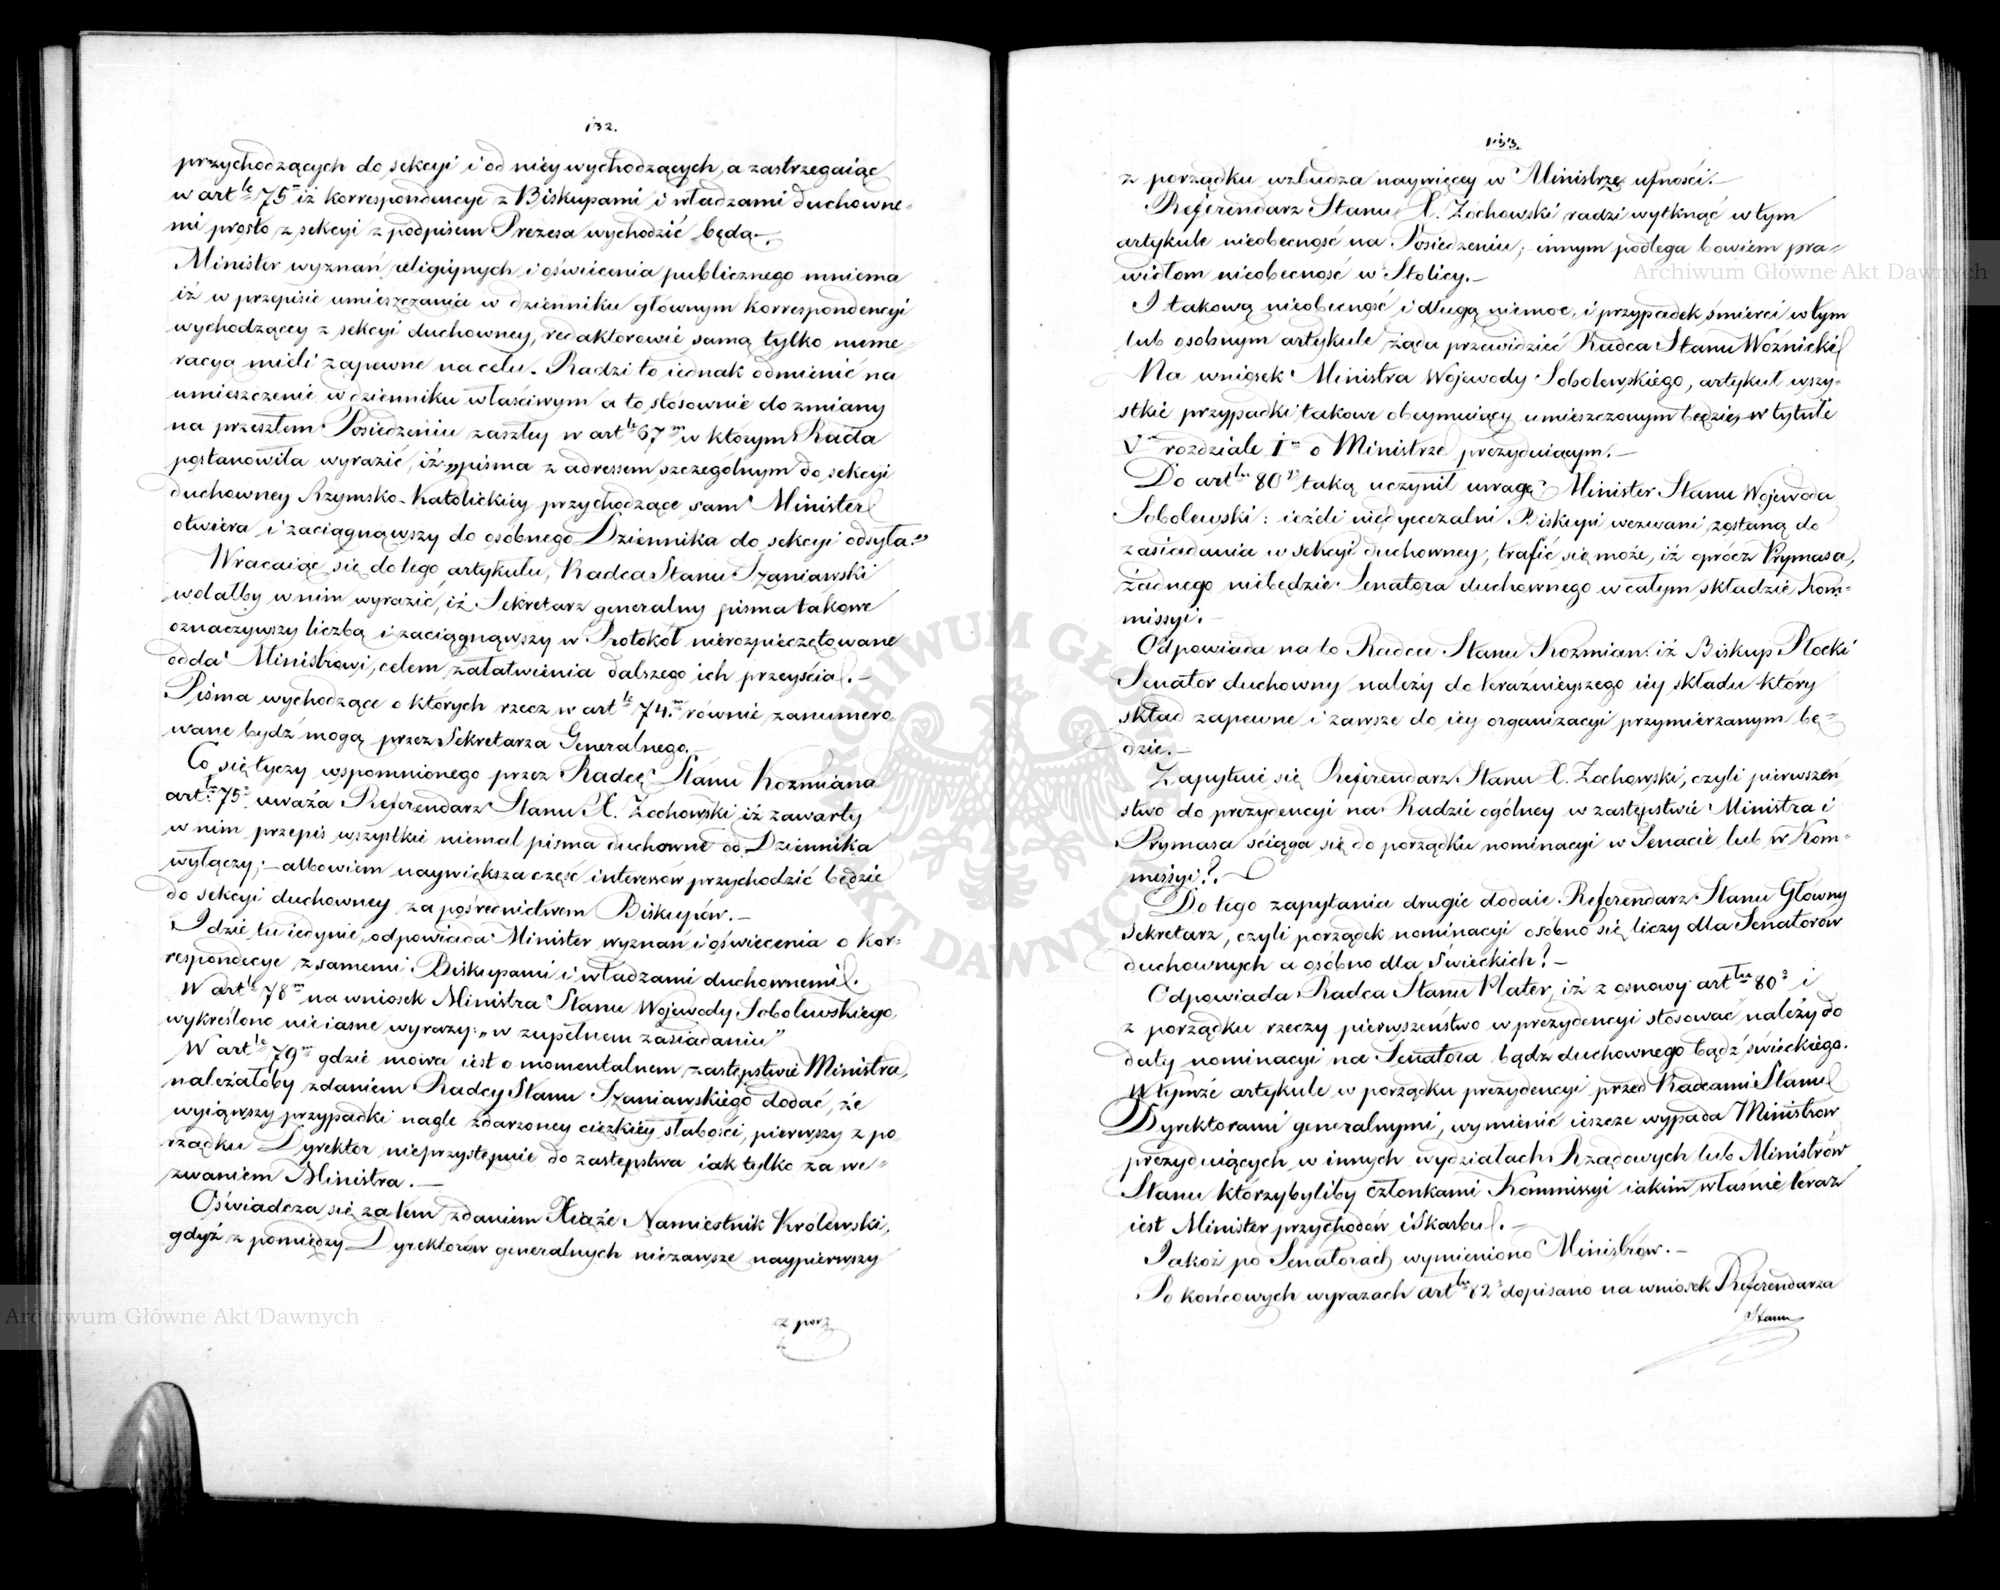 132.
przychodzących do sekcyi i od niey wychodzących, a zastrzegaiąc
w art.le 75m iż korrespondencye z Biskupami i władzami duchowne=
mi prosto z sekcyi z podpisem Prezesa wychodzić będą.—
Minister wyznań religiynych i oświecenia publicznego mniema
iż w przepisie umieszczania w dzienniku głównym korrespondencyi
wychodzącey z sekcyi duchowney, redaktorowie samą tylko nume
racyą mieli zapewne na celu. Radzi to iednak odmienić na
umieszczenie w dzienniku właściwym a to stósownie do zmiany
na przeszłem Posiedzeniu zaszłey w art.le 67m w którym Rada
postanowiła wyrazić iż „pisma z adressem szczególnym do sekcyi
duchowney Rzymsko-Katolickiey przychodzące sam Minister
otwiera i zaciągnąwszy do osóbnego Dziennika do sekcyi odsyła."
Wracaiąc się do tego artykułu, Radca Stanu Szaniawski
wolałby w nim wyrazić, iż Sekretarz generalny pisma takowe
oznaczywszy liczbą i zaciągnąwszy w Protokół nierozpieczętowane
odda Ministrowi, celem załatwienia dalszego ich przeyścia.—
Pisma wychodzące o których rzecz w art.le 74.m równie zanumero
wane bydź mogą przez Sekretarza Generalnego.—
Co się tyczy wspomnionego przez Radcę Stanu Kozmiana
art.łu 75o uważa Referendarz Stanu X. Żochowski iż zawarty
w nim przepis wszystkie niemal pisma duchowne od Dziennika
wyłączy; – albowiem naywiększa część interessów przychodzić będzie
do sekcyi duchowney za pośrednictwem Biskupów.—
Idzie tu iedynie, odpowiada Minister wyznań i oświecenia o kor=
respondecye z samemi Biskupami i władzami duchownemi.
W art.le 78m na wniosek Ministra Stanu Wojewody Sobolewskiego,
wykreślono nieiasne wyrazy: „w zupełnem zasiadaniu"
W art.le 79m gdzie mowa iest o momentalnem zastępstwie Ministra,
należałoby zdaniem Radcy Stanu Szaniawskiego dodać, że
wyiąwszy przypadki nagle zdarzoney ciężkiey słabości, pierwszy z po
rządku Dyrektor nieprzystępuie do zastępstwa iak tylko za we=
zwaniem Ministra.—
Oświadcza się za tem zdaniem Xiąże Namiestnik Królewski,
gdyż z pomiędzy Dyrektorów generalnych niezawsze naypierwszy
z porz
133.
z porządku wzbudza naywięcey w Ministrze ufności.—
Referendarz Stanu X. Żochowski radzi wytknąć w tym
artykule nieobecność na Posiedzeniu; – innym podlega bowiem pra=
widłom nieobecność w Stolicy.—
I takową nieobecność i długą niemoc, i przypadek śmierci w tym
lub osobnym artykule żąda przewidzieć Radca Stanu Woźnicki
Na wniosek Ministra Wojewody Sobolewskiego, artykuł wszy=
stkie przypadki takowe obeymuiący umieszczonym będzie w tytule
Vm rozdziale Im o Ministrze prezyduiącym.—
Do art.łu 80o taką uczynił uwagę Minister Stanu Wojewoda
Sobolewski: ieżeli niedyecezalni Biskupi wezwani zostaną do
zasiadania w sekcyi duchowney, trafić się może, iż oprócz Prymasa,
żadnego niebędzie Senatora duchownego w całym składzie Kom=
missyi.—
Odpowiada na to Radca Stanu Kozmian iż Biskup Płocki
Senator duchowny należy do teraznieyszego iey składu który
skład zapewne i zawsze do iey organizacyi przymierzanym bę=
dzie.—
Zapytuie się Referendarz Stanu X. Żochowski, czyli pierwszeń
stwo do prezydencyi na Radzie ogólney w zastępstwie Ministra i
Prymasa ściąga się do porządku nominacyi w Senacie lub w Kom=
missyi?.—
Do tego zapytania drugie dodaie Referendarz Stanu Główny
Sekretarz, czyli porządek nominacyi osóbno się liczy dla Senatorów
duchownych a osóbno dla świeckich?—
Odpowiada Radca Stanu Plater, iż z osnowy art.łu 80o i
z porządku rzeczy pierwszeństwo w prezydencyi stosować należy do
daty nominacyi na Senatora bądź duchownego bądź świeckiego.
W tymże artykule w porządku prezydencyi przed Radcami Stanu
Dyrektorami generalnymi, wymienić ieszcze wypada Ministrów
prezyduiących w innych wydziałach Rządowych lub Ministrów
Stanu którzybyliby członkami Kommissyi iakim właśnie teraz
iest Minister przychodów i Skarbu.—
Jakoż po Senatorach wymieniono Ministrów.—
Po końcowych wyrazach art.łu 82o dopisano na wniosek Referendarza
Stanu
Archiwum Główne Akt Dawnych
Archiwum Główne Akt Dawnych
ARCHIWUM GŁÓWNE AKT DAWNYCH